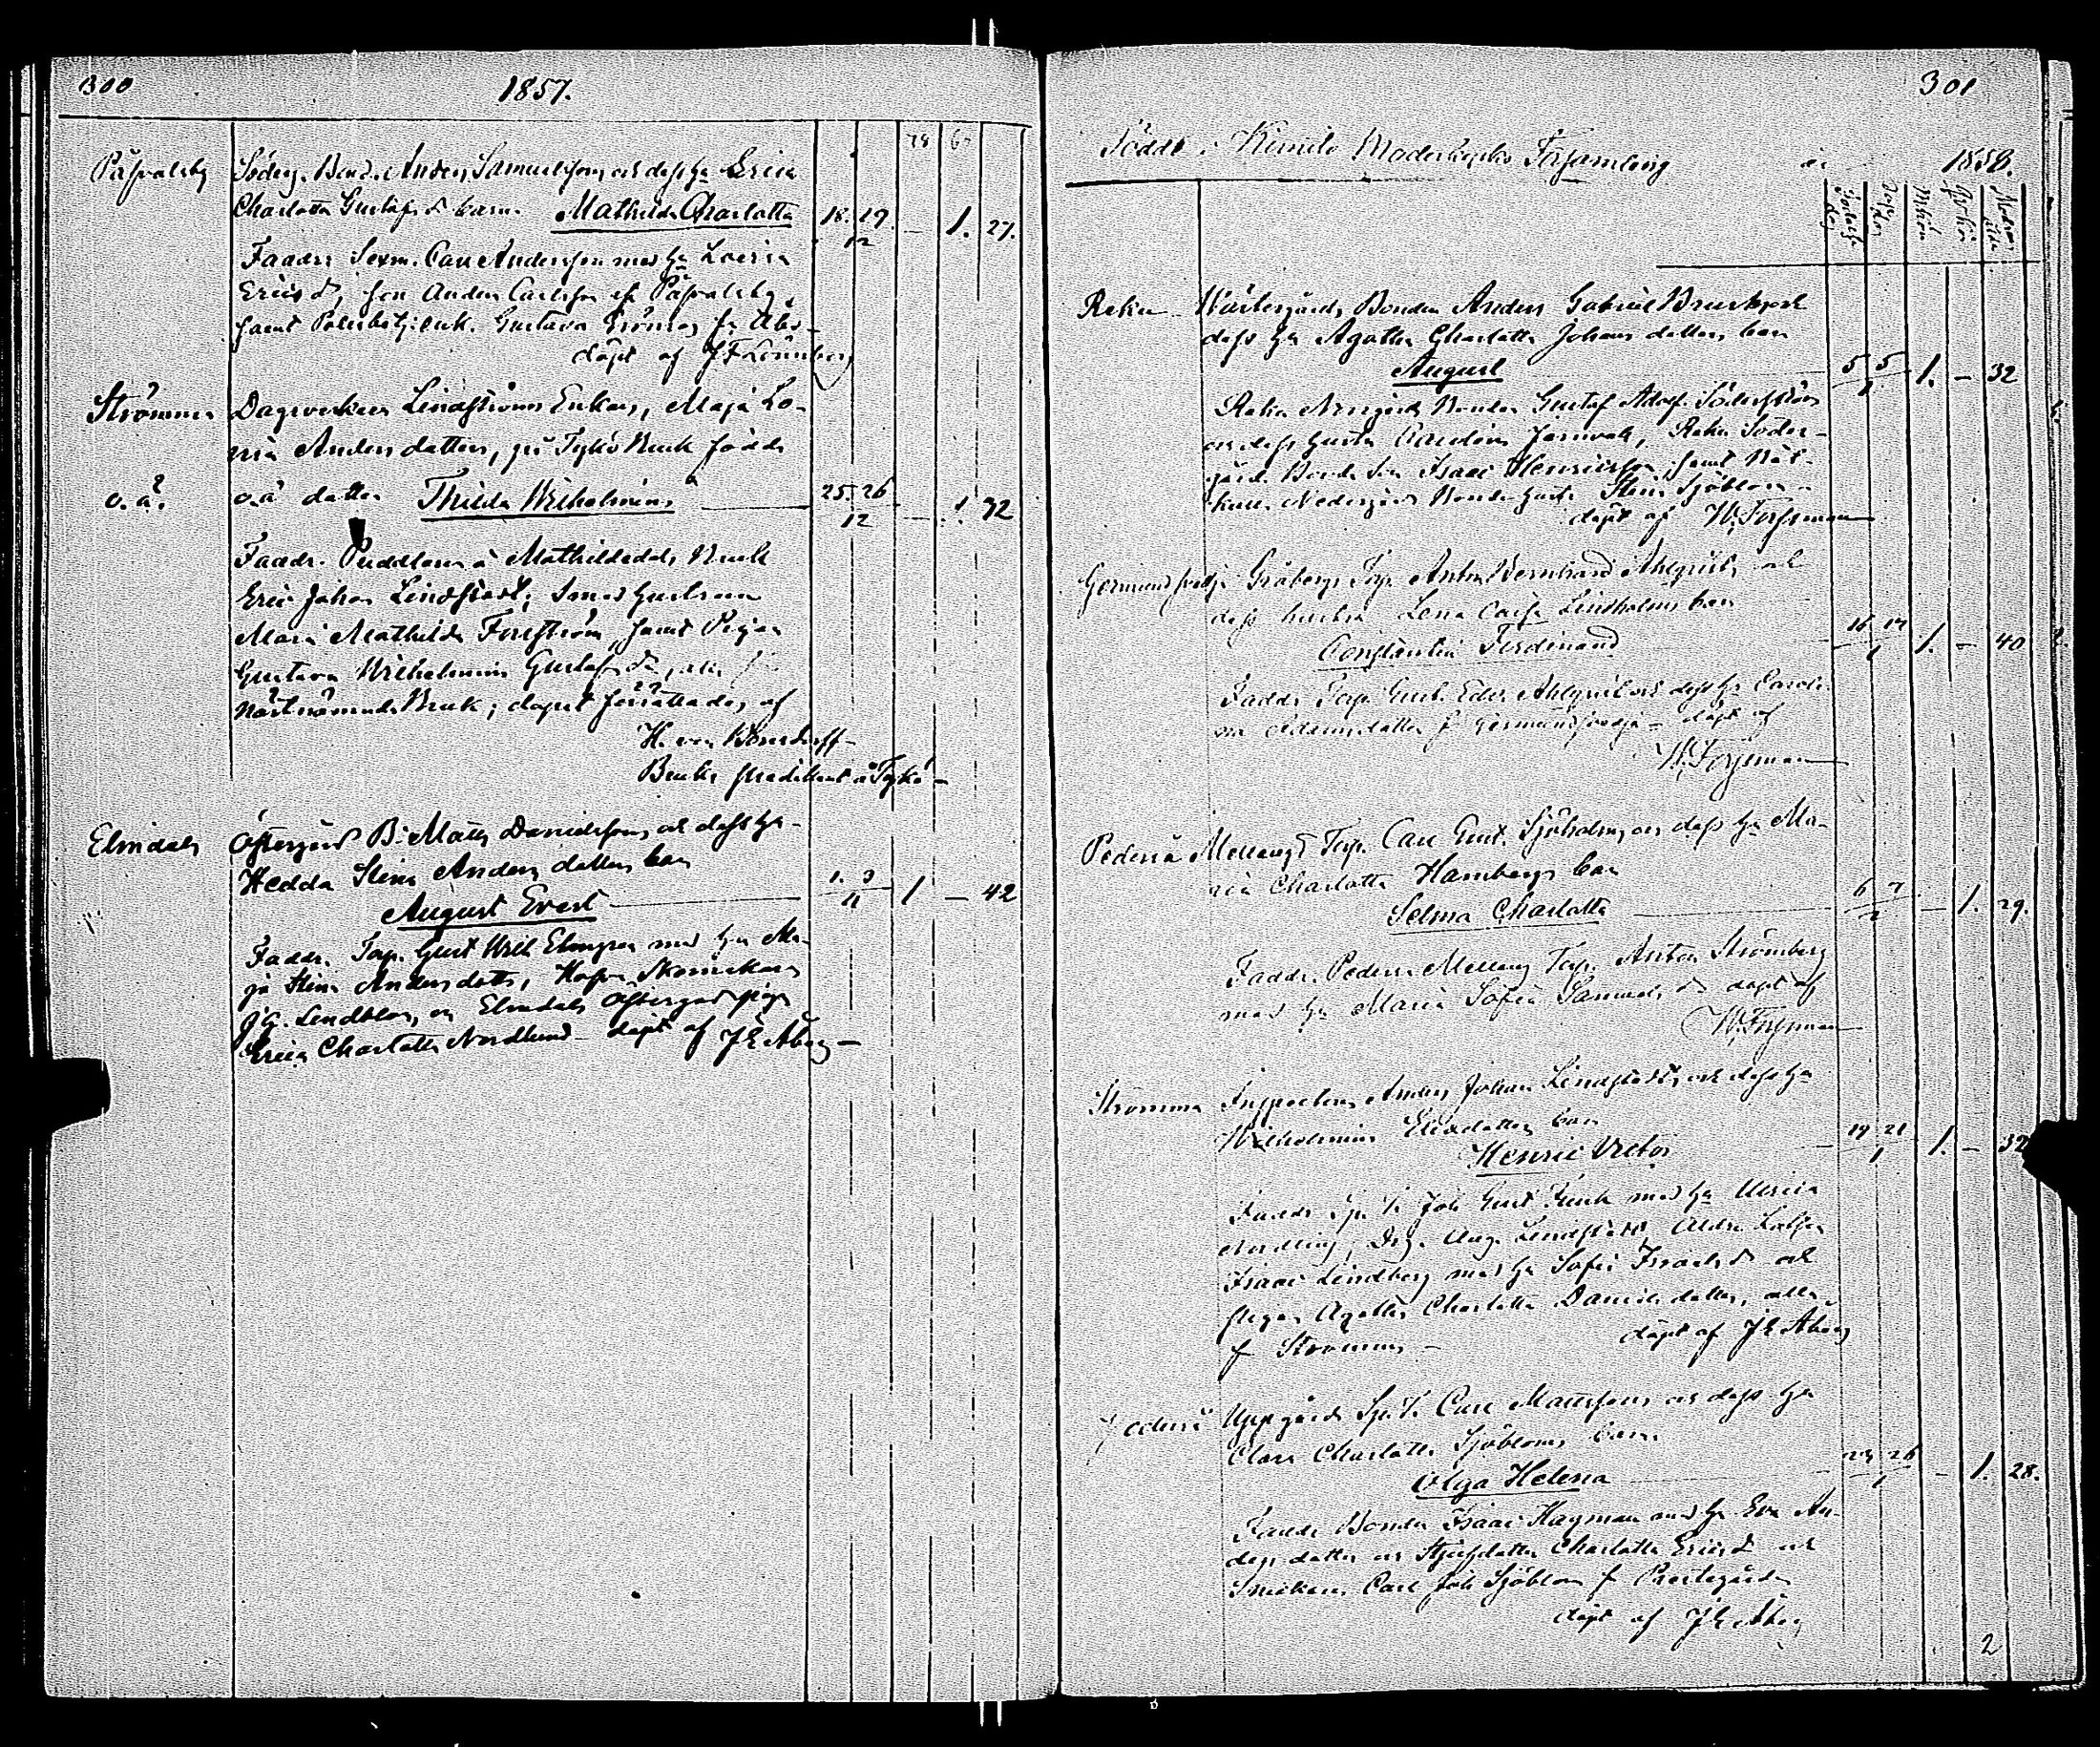 300
1857.
78 6
Påhvalsby Söderg. Bond. Anders Samuelsson och dess hu Erica
Charlotta Gustafs d. barn Mathilda Charlotta 18. 19. 12 — 1. 27.
Faddr. Sexm. Carl Andersson med hu Lovisa
Erics d, son Anders Carlsson fr Påhvalsby,
samt Gustava Grönros fr Åbo —
döpt af J F Lönnberg
Strömma Dagsverkaren Lindströms Enkas, Maja Lo-
visa Andersdotters, på Tykö Bruk födda
o.ä. o.ä dotter Thilda Wilhelmina 25. 26 12 — 1. 32
Faddr. Puddlaren å Mathildedals Bruk
Eric Johan Lindstedt, Smeds hustrun
Maria Mathilda Forsström, samt Pigan
Gustava Wilhelmina Gustafs dr, alla
nästnämnde Bruk; dopet förrättades af
H. von Bonsdorff
Bruks predikant å Tykö —
Elmdals Östergård B. Matts Danielsson och dess hu
Hedda Stina Anders dotters barn
August Evert 1. 3 11 1 — 42
Faddr. Torp. Gust Wilh Elmgren med hu Ma-
ja Stina Andersdotter, Skomakaren
J G. Lindblom, och Elmdals Östergård piga
Erica Charlotta Nordlund — döpt af J E Åberg —
301
Födde i Kimito Moderkyrko Församling år 1858.
Födelse dag
Dop dag
Mkön
Qvkön
Modrens ålder
Rekua Westergårds Bonden Anders Gabriel
dess hu Agatha Charlotta Johans dotters barn
August 5 5 1 1. — 32
Rekua Norrgårds Bonden Gustaf Adolf Söderström
och dess hustru Carolina, Rekua Söder-
gård Bonde son Isaac Henricsson samt
Nedergårds Bonde hustr. Stina Sjöblom —
döpt af W. Forssman
Germundsvedja Gråbergs Torp. Anton Bernhard Ahlqvist och
dess hustru Lena Caisa Lindholms barn
Constantin Ferdinand 16 17 1 1. — 40
Faddr Torp. Gust. Edv. Ahlqvist och dess hu Caroli-
na Adamsdotter fr Germundsvedja — döpt af
W. Forssman
Pederså Mellangd Torp. Carl Gust. Sjöholm och dess hu Ma-
ria Charlotta Hambergs barn
Selma Charlotta 6 7 2 — 1. 29.
Faddr. Pederså Mellang Torp. Anton Strömberg
med hu Maria Sofia Samuels dr döpt af
W. Forssman
Strömma Inspectoren Anders Johan Lindstedt, och dess hu
Wilhelmina Elisdotters barn
Henric Victor 19 21 1 1. — 32
Faddr Joh Gust Funk med hu Ulrica
Nordling, Drg. Aug. Lindstedt,
Isaac Lindberg med hu Sofia Isaacs d. och
pigan Agatha Charlotta Danielsdotter, alla
fr Strömma — döpt af J E Åberg
Pederså Uppgårds Carl Mattsson och dess hu
Clara Charlotta Sjöbloms barn
Olga Helena 23 26 1 — 1. 28.
Faddr Bonden Isaac Hagman med hu Eva An-
ders dotter och Styfdotter Charlotta Erics d och
Snickaren Carl Joh Sjöblom fr Prestegården
döpt af J E Åberg
2